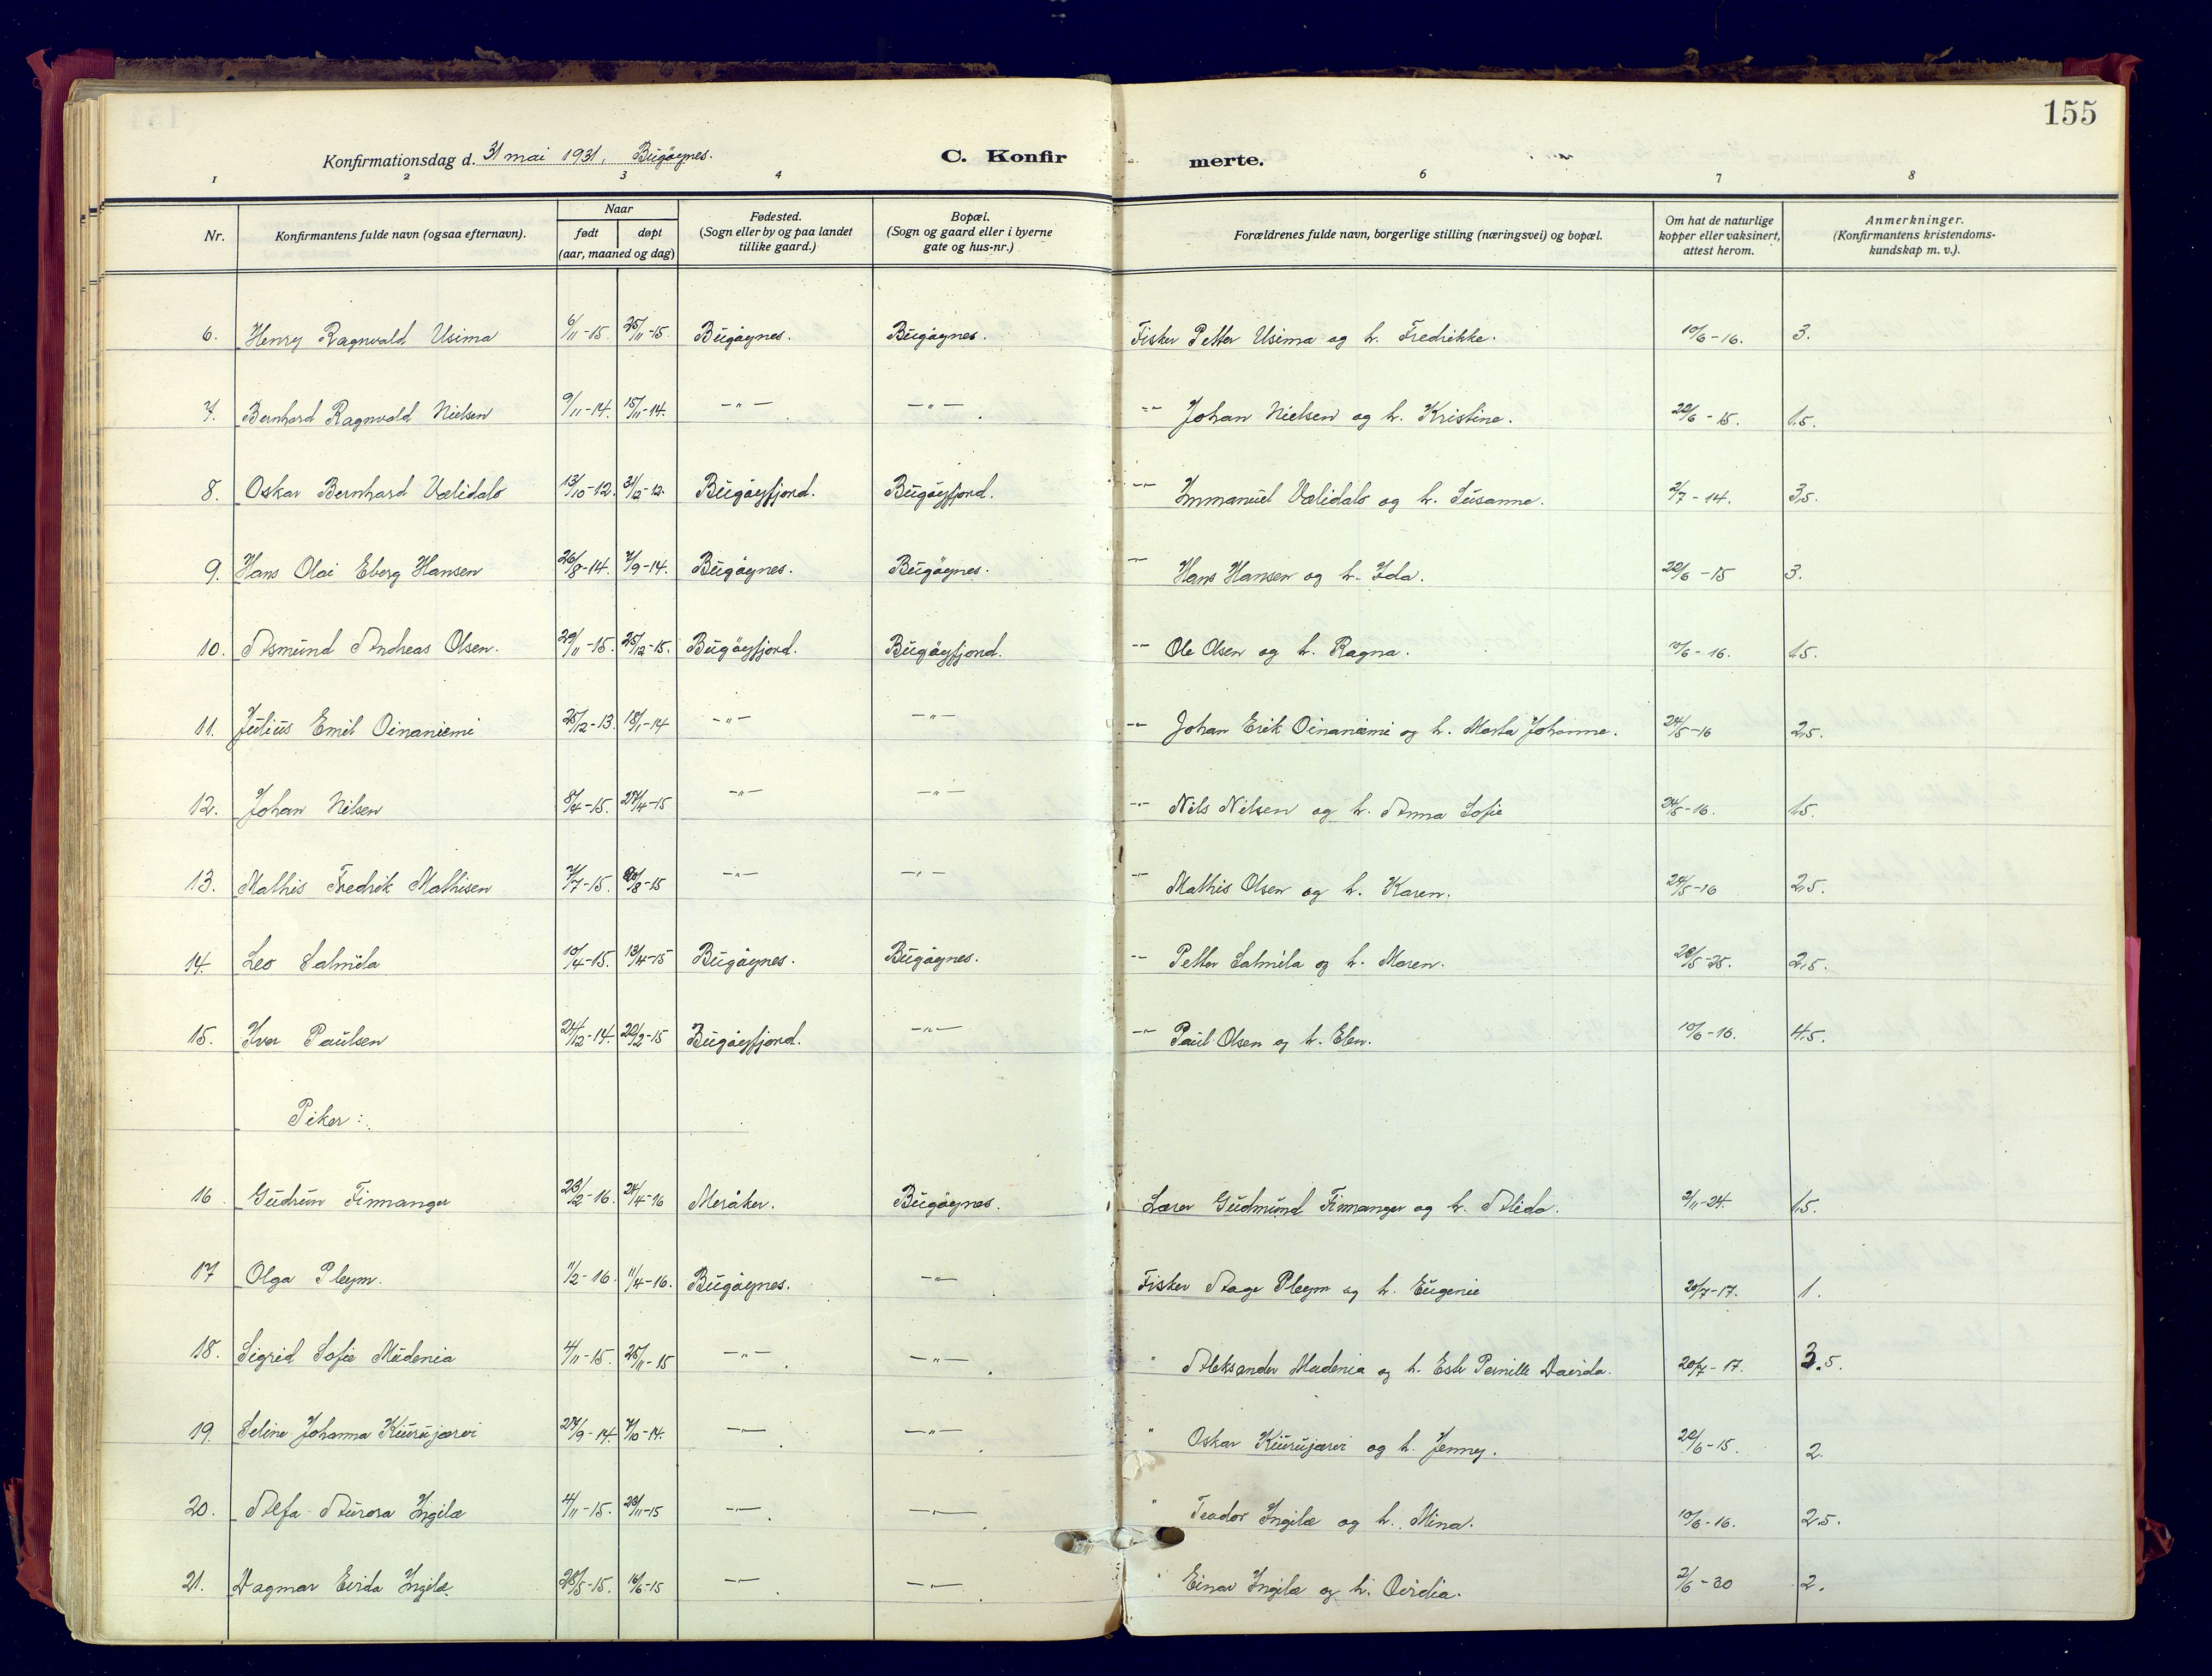 155
Konfirmationsdag d. 31 mai 1931, Bugøynes. C. Konfirmerte.
1 2 3 4 6 7 8
Nr. Konfirmantens fulde navn (ogsaa efternavn). Naar født døpt (aar, maaned og dag) Fødested. (Sogn eller by og paa landet tillike gaard.) Bopæl. (Sogn og gaard eller i byerne gate og hus-nr.) Forældrenes fulde navn, borgerlige stilling (næringsvei) og bopæl. Om hat de naturlige kopper eller vaksinert, attest herom. Anmerkninger. (Konfirmantens kristendomskundskap m. v.).
6. Henry Ragnvald Usima 6/11-15. 25/11-15. Bugøynes. Bugøynes. Fisker Petter Usima og h. Fredrikke. 10/6-16. 3.
7. Bernhard Ragnvald Nielsen 9/11-14. 15/11-14. -"- -"- -"- Johan Nielsen og h. Kristine. 22/6-15. 1.5.
8. Oskar Bernhard Vælidalo 13/10-12. 31/12-12. Bugøyfjord. Bugøyfjord. -"- Immanuel Vælidalo og h. Susanne. 2/7-14. 3,5.
9. Hans Olai Eberg Hansen 26/8-14. 7/9-14. Bugøynes. Bugøynes. -"- Hans Hansen og h. Ida. 22/6-15 3.
10. Asmund Andreas Olsen. 29/11-15. 25/12-15. Bugøyfjord. Bugøyfjord. -"- Ole Olsen og h. Ragna. 10/6-16. 1.5.
11. Julius Emil Oinaniemi 25/12-13. 18/1-14 -"- -"- -"- Johan Erik Oinaniemi og h. Marta Johanne. 24/5-16 2,5.
12. Johan Nilsen 8/4-15. 27/4-15 -"- -"- -"- Nils Nilsen og h. Anna Sofie 24/5-16. 1.5.
13. Mathis Fredrik Mathisen 7/7-15. /8-15 -"- -"- -"- Mathis Olsen og h. Karen. 24/5-16 2,5.
14. Leo Salmila 10/4-15. 13/4-15 Bugøynes. Bugøynes. -"- Petter Salmila og h. Maren. 28/5-25. 2,5.
15. Iver Paulsen 24/12-14. 20/2-15 Bugøyfjord. -"- -"- Paul Olsen og h. Elen. 10/6-16. 4,5.
Piker:
16. Gudrun Finnanger 23/2-16. 24/4-16 Meråker. Bugøynes. Lærer Gudmund Finnanger og h. Alida. 2/11-24. 1.5.
17 Olga Pleym. 11/2-16. 11/4-16. Bugøynes. -"- Fisker Aage Pleym og h. Eugenie 20/7-17. 1.
18. Sigrid Sofie Mudenia 4/11-15. 25/11-15 -"- -"- " Aleksander Mudenia og h. Ester Pernille Davida. 20/7-17. 3.5.
19. Seline Johanna Kiurujærvi 27/9-14. 7/10-14. -"- -"- " Oskar Kiurujærvi og h. Jenny. 22/6-15. 2.
20. Alfa Aurora Ingilæ 4/11-15. 23/11-15 -"- -"- " Teodor Ingilæ og h. Mina. 10/6-16. 2.5.
21. Dagmar Evida Ingilæ. 28/5-15. 16/6-15 -"- -"- " Einar Ingilæ og h. 2/6-30 2.